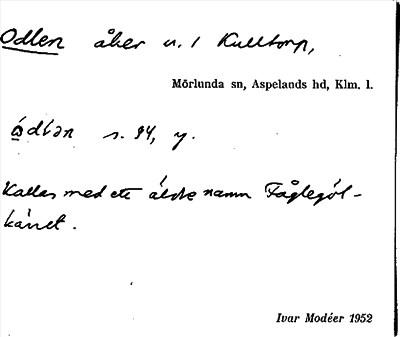 Odlen åker u. 1 Kulltorp,
Mörlunda sn, Aspelands hd, Klm. l.
s. 94, y.
Kallas med ett äldre namn Fåglegöl-
kärret.
Ivar Modéer 1952